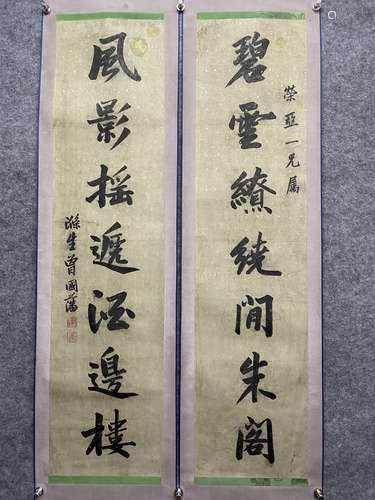 榮亞一兄屬
碧雲繚繞間朱閣
風影搖遞酒邊樓
滌生曾國藩